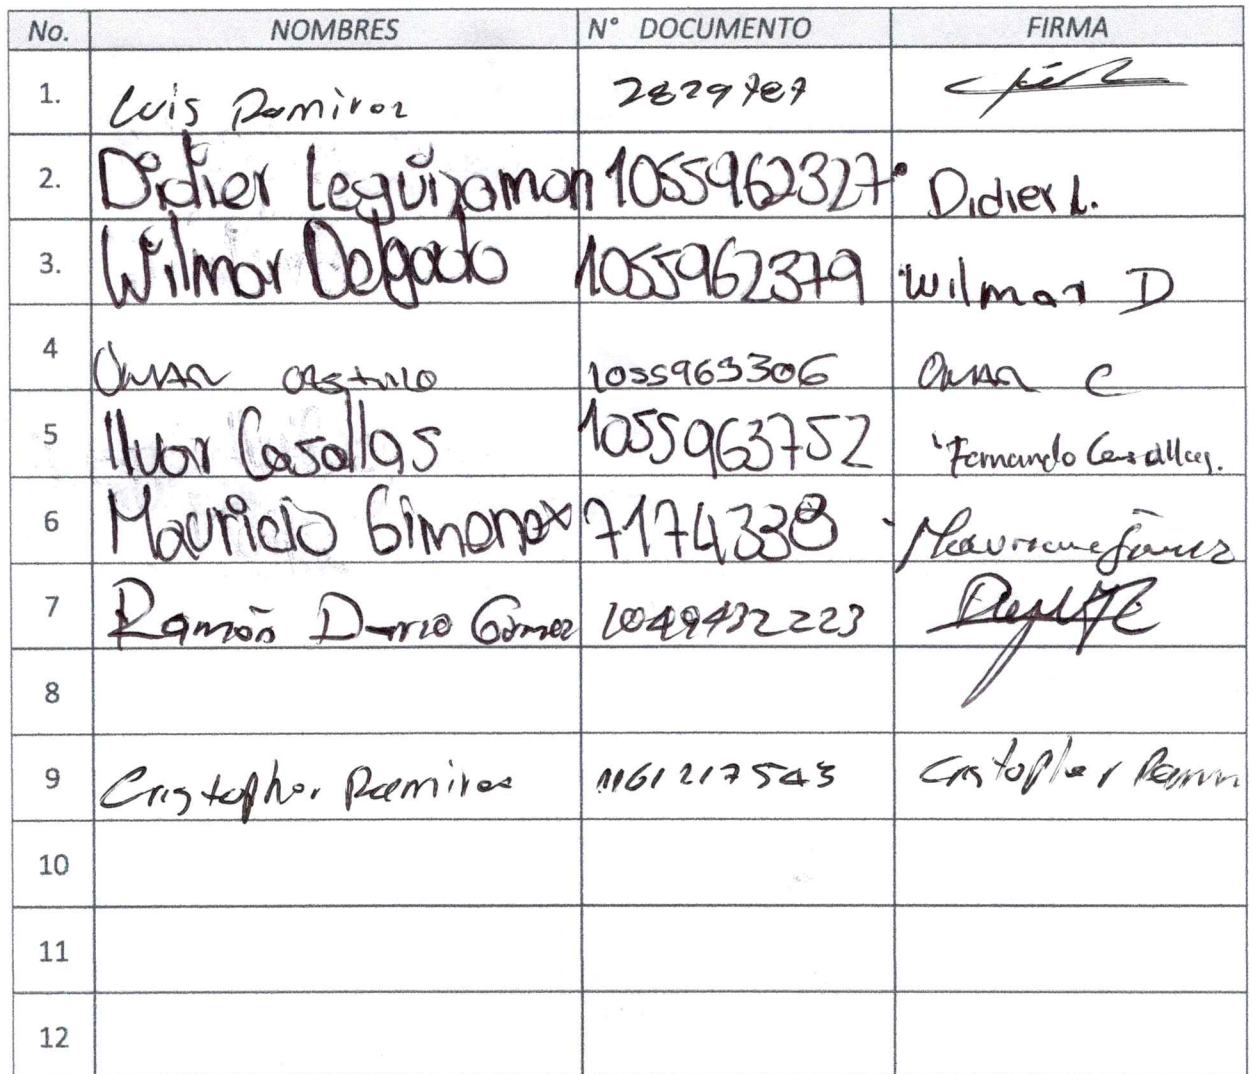 No. NOMBRES N° DOCUMENTO FIRMA
1. Luis Ramirez 2829787
2. Didier Leguizamon 1055962327 Didier L.
3. Wilmar Delgado 1055962379 Wilmar D
4 Omar Castillo 1055963306 Omar C
5 Iluar Casallas 1055963752 Fernando Casallas.
6 Mauricio Gimenex 7174338
7 Ramón Dario Gómez 1049432223
8
9 Cristopher Ramirez 1161217543 Cristopher Ramir
10
11
12